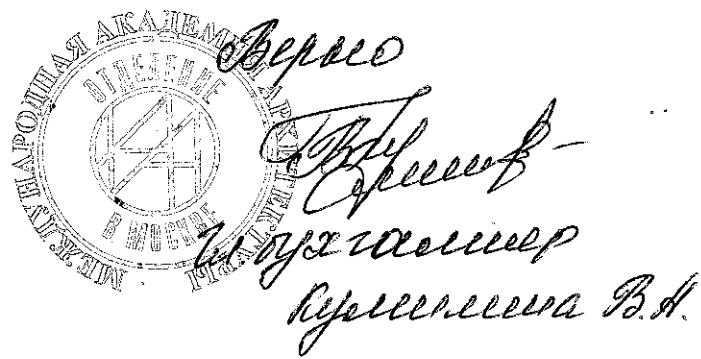 МЕЖДУНАРОДНАЯ АКАДЕМИЯ АРХИТЕКТУРЫ
ОТДЕЛЕНИЕ
В МОСКВЕ
Верно
Гл бухгалтер
В.Н.